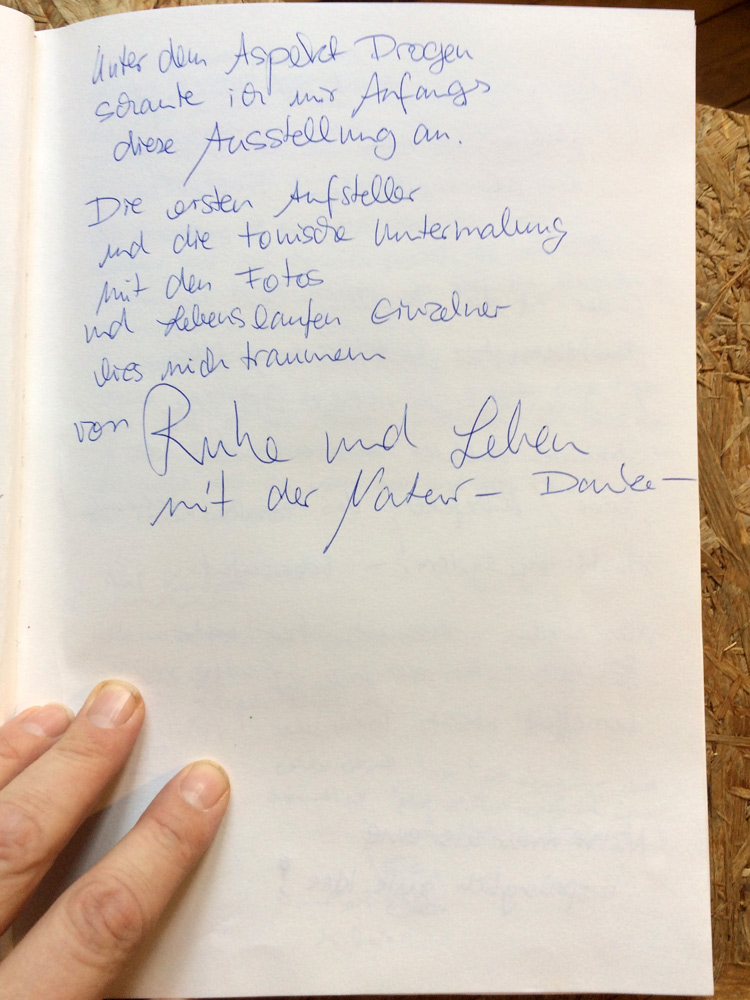 Unter dem Aspekt Drogen
schaute ich mir Anfangs
diese Ausstellung an.
Die ersten Aufsteller
und die tonische Untermalung
mit den Fotos
und Lebensläufen Einzelner
lies mich träumen
von Ruhe und Leben
mit der Natur – Danke –